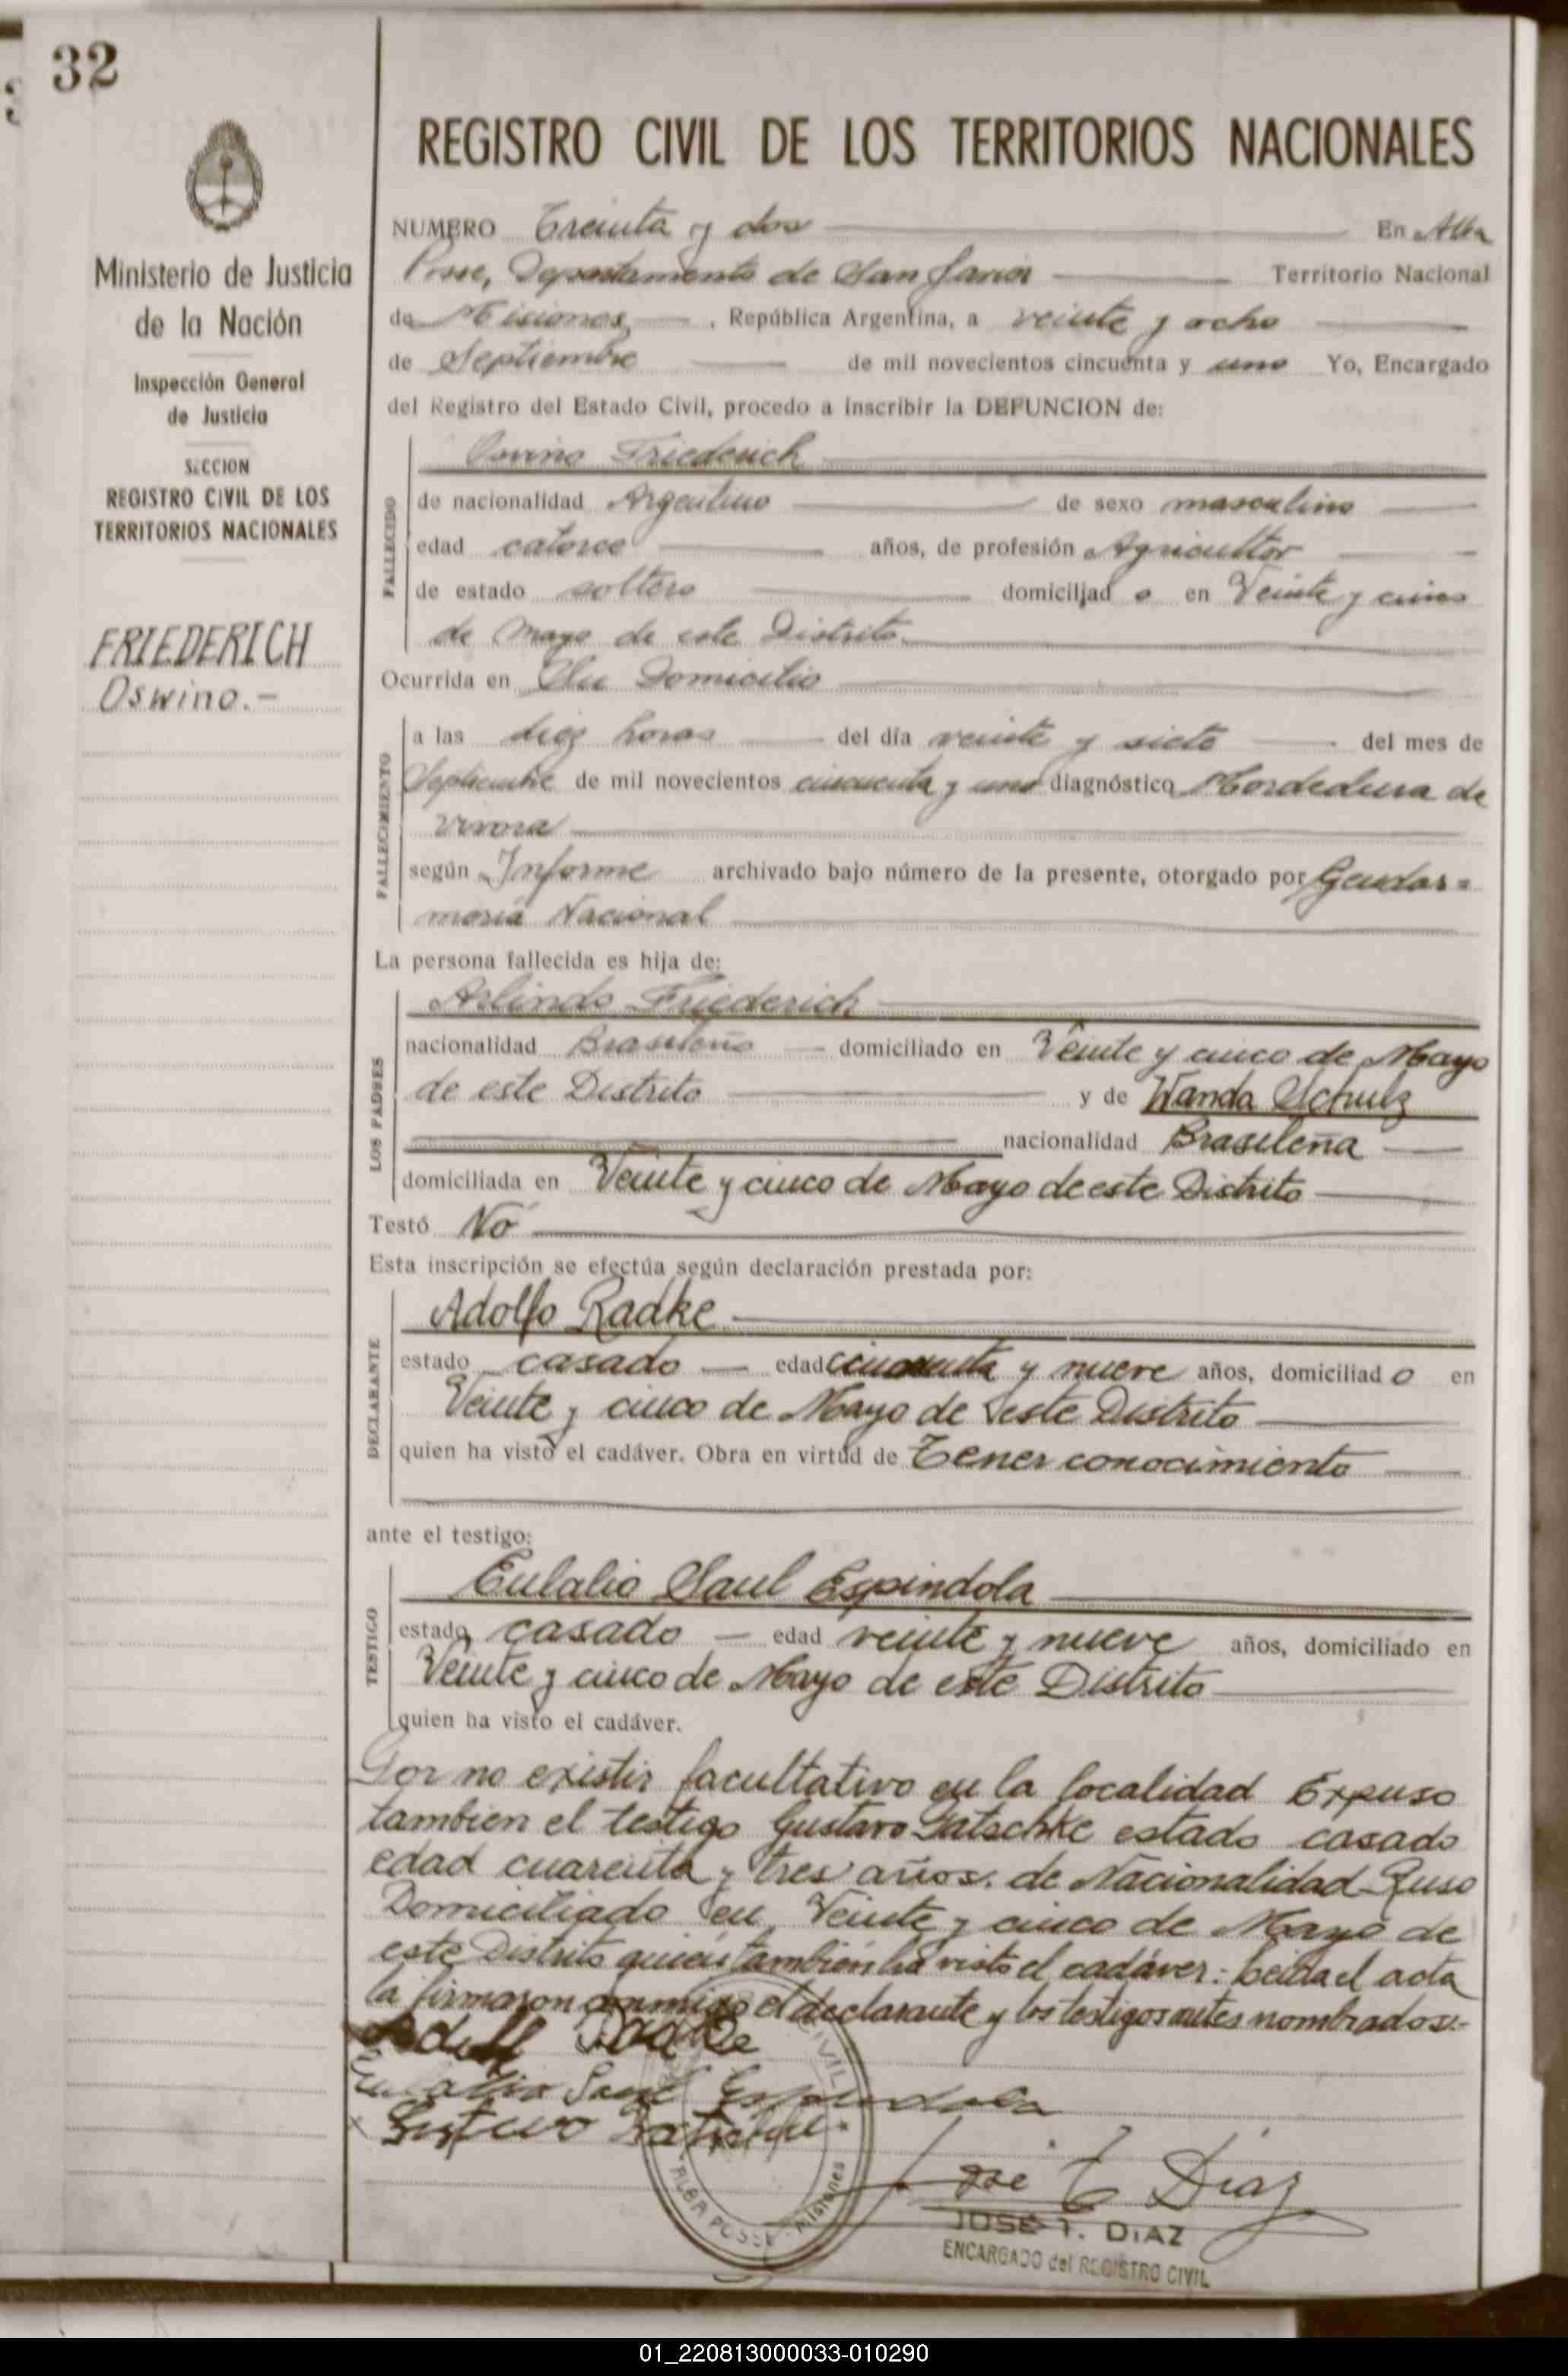 32
Ministerio de Justicia
de la Nación
Inspección General
de Justicia
SECCION
REGISTRO CIVIL DE LOS
TERRITORIOS NACIONALES
FRIEDERICH
Oswino.-
REGISTRO CIVIL DE LOS TERRITORIOS NACIONALES
NUMERO Treinta y dos En Alba
Posse, Departamento de San Javier Territorio Nacional
de Misiones, , República Argentina, a veinte y ocho
de Septiembre de mil novecientos cincuenta y uno Yo, Encargado
del Registro del Estado Civil, procedo a inscribir la DEFUNCION de:
FALLECIDO
Friederich
de nacionalidad Argentino de sexo masculino
edad catorce años, de profesión Agricultor
de estado soltero domiciliad o en Veinte y cinco
de Mayo de este Distrito.
Ocurrida en Su Domicilio
FALLECIMIENTO
a las diez horas del día veinte y siete del mes de
Septiembre de mil novecientos cincuenta y uno diagnóstico Mordedura de
vivora
según Informe archivado bajo número de la presente, otorgado por Gendar=
meria Nacional
La persona fallecida es hija de:
LOS PADRES
Arlindo Friederich
nacionalidad Brasileño domiciliado en Veinte y cinco de Mayo
de este Distrito y de Wanda Schulz
nacionalidad Brasileña
domiciliada en Veinte y cinco de Mayo de este Distrito
Testó No
Esta inscripción se efectúa según declaración prestada por:
DECLARANTE
Adolfo Radke
estado casado edad cincuenta y nueve años, domiciliad o en
Veinte y cinco de Mayo de este Distrito
quien ha visto el cadáver. Obra en virtud de Tener conocimiento
ante el testigo:
TESTIGO
Eulalio Saul Espindola
estado casado edad veinte y nueve años, domiciliado en
Veinte y cinco de Mayo de este Distrito
quien ha visto el cadáver.
Por no existir facultativo en la localidad Expuso
tambien el testigo Gustavo Patschke estado casado
edad cuarenta y tres años. de Nacionalidad Ruso
Domiciliado en, Veinte y cinco de Mayo de
este Distrito quien también ha visto el cadáver: Leida el acta
la firmaron conmigo el declarante y los testigos antes nombrados.-
Adolf Radke
Eulalio Saul Espindola
Gustavo
CIVIL
ALBA POSSE - Misiones
Jose T Diaz
JOSE T. DIAZ
ENCARGADO del REGISTRO CIVIL
01_220813000033-010290